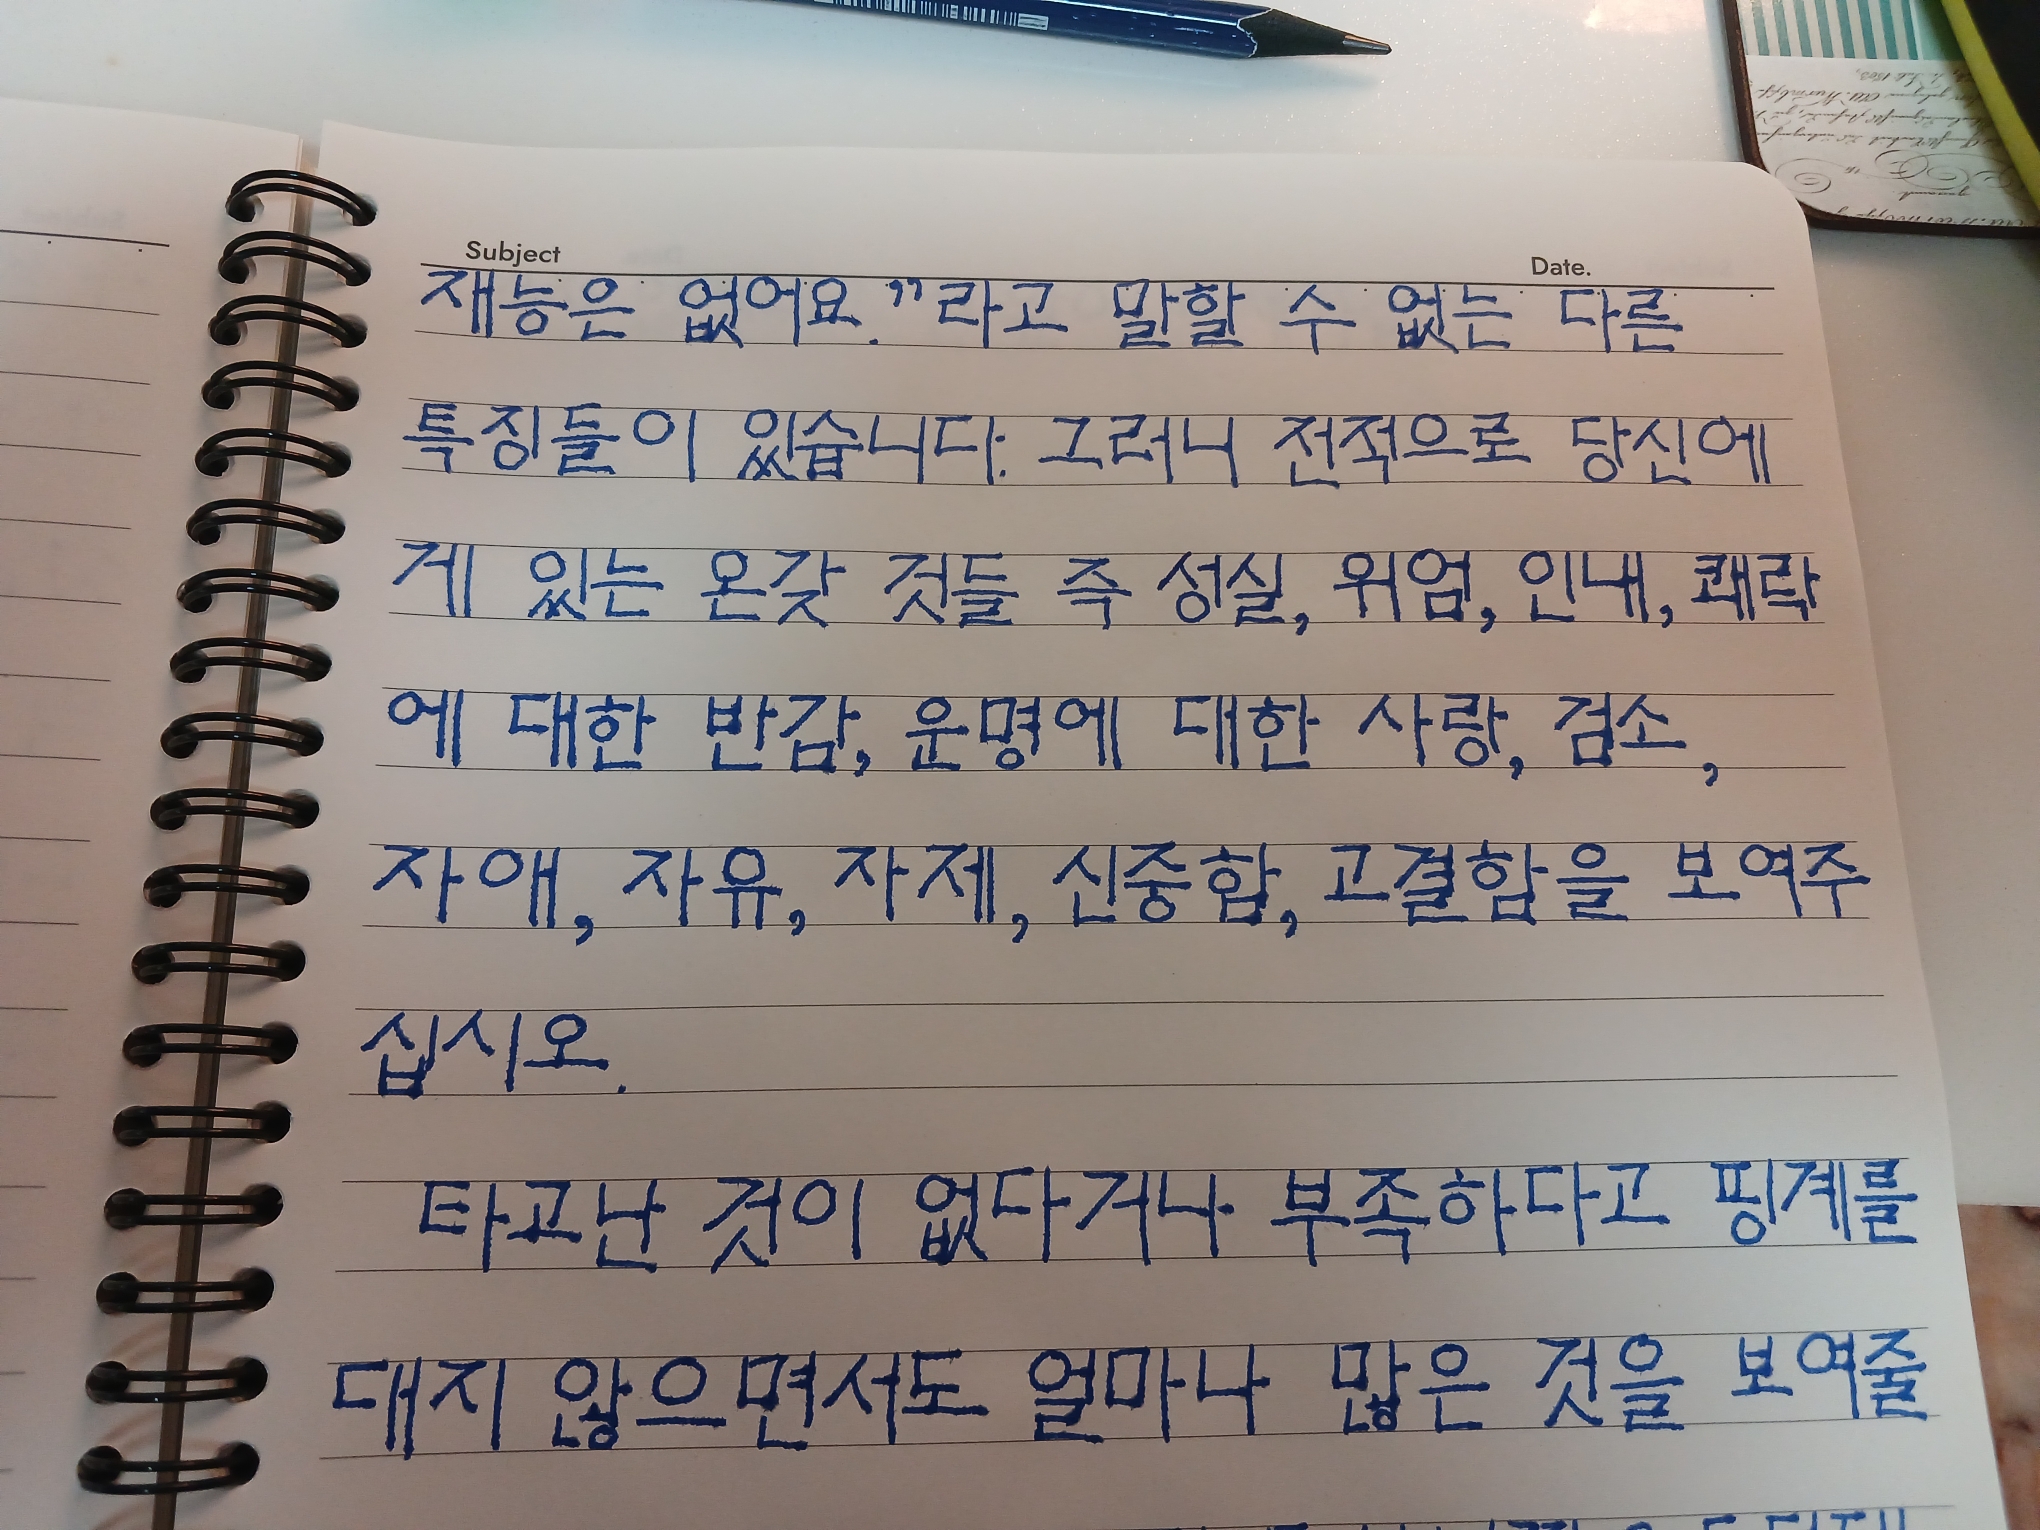 Subject
Date.
재능은 없어요.”라고 말할 수 없는 다른
특징들이 있습니다. 그러니 전적으로 당신에
게 있는 온갖 것들 즉 성실, 위엄, 인내, 쾌락
에 대한 반감, 운명에 대한 사랑, 검소,
자애, 자유, 자제, 신중함, 고결함을 보여주
십시오.
타고난 것이 없다거나 부족하다고 핑계를
대지 않으면서도 얼마나 많은 것을 보여줄